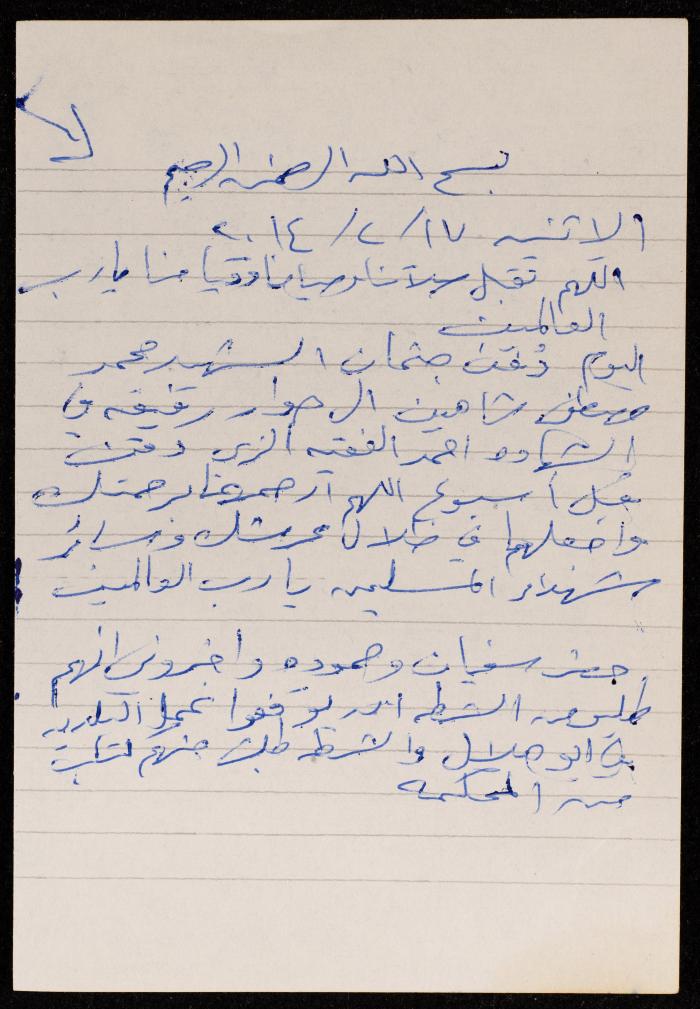 بسم الله الرحمن الرحيم
الاثنين ١٧/ ٢/ ٢٠١٤
اللهم تقبل صلاتنا وصيامنا وقيامنا يارب
العالمين
اليوم دفن جثمان الشهيد محمد
مصطفى شاهين الى جوار رفيقه في
الشهاده احمد الفقيه الذي دفن
قبل اسبوع اللهم ارحمهما برحمتك
واجعلهما في ظلال عرشك وسائر
شهداء المسلمين يا رب العالمين
حضر سفيان وحموده واخبروني انهم
طلبو من الشرطه ان يوقفوا عمل البلديه
في ابو هلال والشرطه طلبت منهم كتاب
من المحكمه